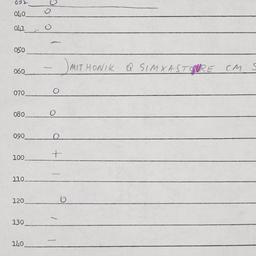 032 0
040 0
041 0
050 –
060 – ) MITHONIK Q SIMXASTORE CM S
070 0
080 0
090 0
100 +
110 –
120 0
130 –
140 –